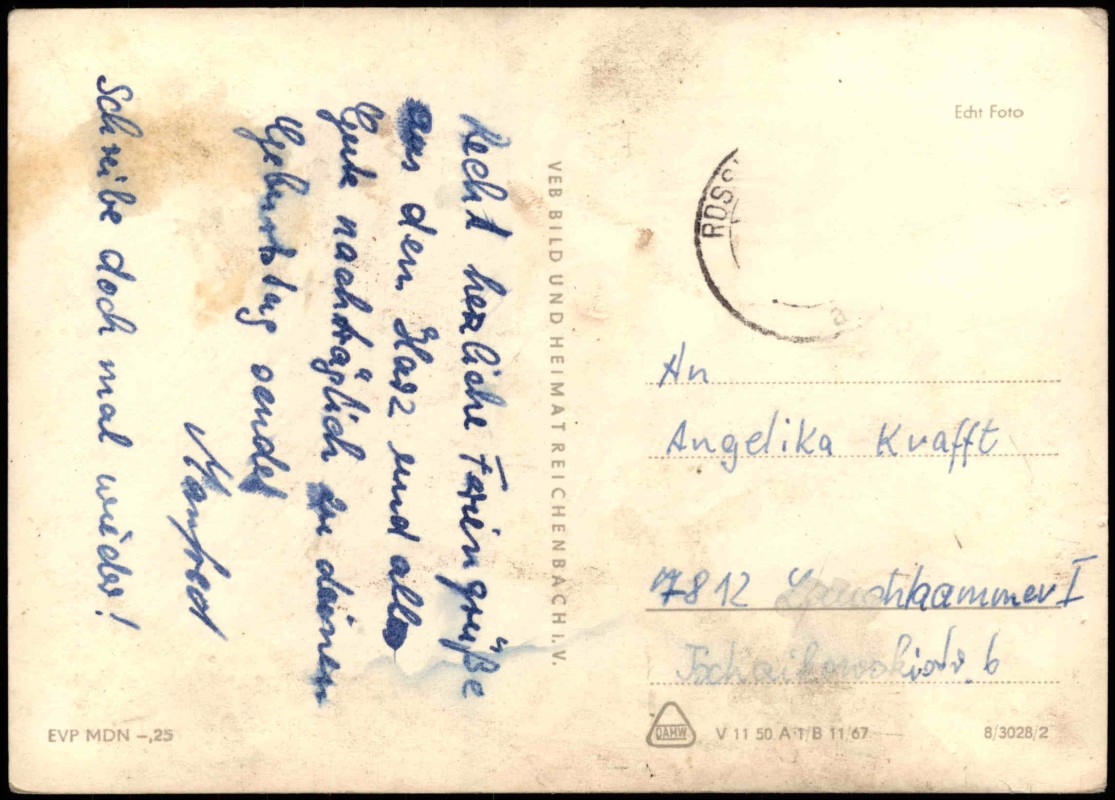 Recht herzliche Fariengrüße
aus den Harz und alles
Gute nachträglich zu deinen
Geburtstag sendet
Manfred
Schreibe doch mal wieder!
VEB BILD UND HEIMAT REICHENBACH I. V.
Echt Foto
ROSS
An
Angelika Krafft
7812 Lauchhammer I
Tschaikowskistr. 6
EVP MDN –,25
DAHW
V 11 50 A 1/B 11/67
8/3028/2